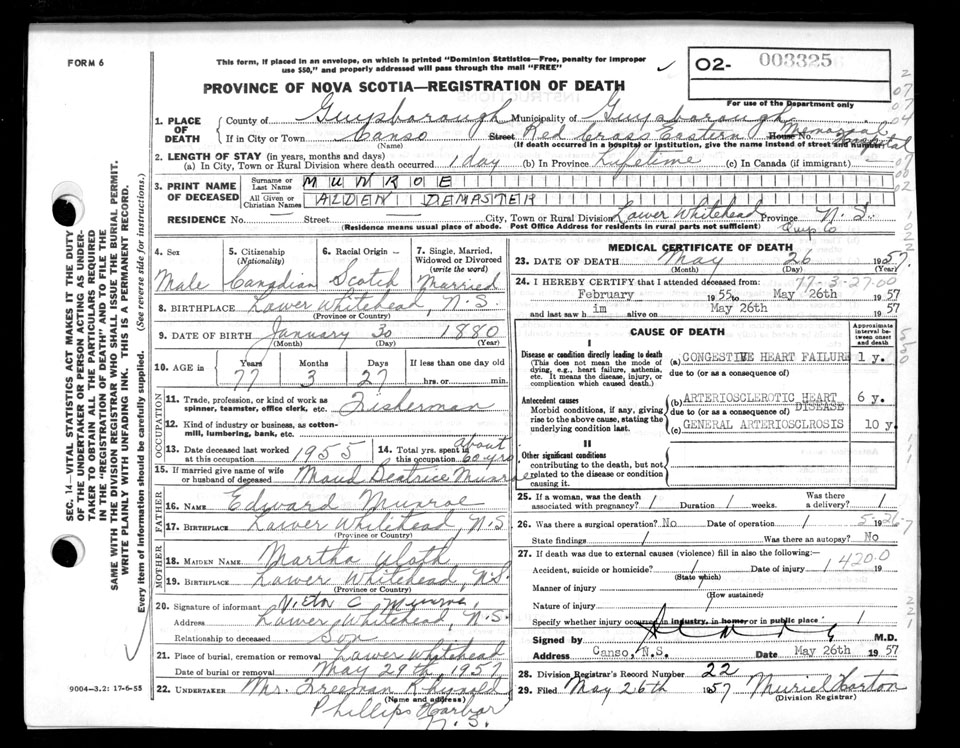 FORM 6
This form, if placed in an envelope, on which is printed "Dominion Statistics—Free, penalty for improper
use $50," and properly addressed will pass through the mail "FREE"
O2- 003325
For use of the Department only
PROVINCE OF NOVA SCOTIA—REGISTRATION OF DEATH
1. PLACE OF DEATH
County of Guysborough Municipality of Guysborough
If in City or Town Canso Street Red Cross Eastern House No. Memorial Hospital
(Name) (If death occurred in a hospital or institution, give the name instead of street and number)
2. LENGTH OF STAY (in years, months and days)
(a) In City, Town or Rural Division where death occurred 1 day (b) In Province Lifetime (c) In Canada (if immigrant)
3. PRINT NAME OF DECEASED
Surname or Last Name MUNROE
All Given or Christian Names ALDEN DEMASTER
RESIDENCE No. Street City, Town or Rural Division Lower Whitehead Province N.S.
(Residence means usual place of abode. Post Office Address for residents in rural parts not sufficient) Guys Co
4. Sex Male
5. Citizenship (Nationality) Canadian
6. Racial Origin Scotch
7. Single, Married, Widowed or Divorced (write the word) Married
8. BIRTHPLACE Lower Whitehead, N.S.
(Province or Country)
9. DATE OF BIRTH January 30 1880
(Month) (Day) (Year)
10. AGE in Years 77 Months 3 Days 27 If less than one day old
hrs. or min.
OCCUPATION
11. Trade, profession, or kind of work as spinner, teamster, office clerk, etc. Fisherman
12. Kind of industry or business, as cotton-mill, lumbering, bank, etc.
13. Date deceased last worked at this occupation 1955
14. Total yrs. spent in this occupation About 60 yrs
15. If married give name of wife or husband of deceased Maud Beatrice Munroe
FATHER
16. NAME Edward Munroe
17. BIRTHPLACE Lower Whitehead, N.S.
(Province or Country)
MOTHER
18. MAIDEN NAME Martha
19. BIRTHPLACE Lower Whitehead, N.S.
(Province or Country)
20. Signature of informant C. Munroe
Address Lower Whitehead, N.S.
Relationship to deceased Son
21. Place of burial, cremation or removal Lower Whitehead
Date of burial or removal May 29th 1957
22. UNDERTAKER Mrs. Freeman
(Name and address)
Phillips Harbor
N.S.
9004—3.2: 17-6-55
MEDICAL CERTIFICATE OF DEATH
23. DATE OF DEATH May 26 1957
(Month) (Day) (Year)
24. I HEREBY CERTIFY that I attended deceased from: 77-3-27-00
February 1955 to May 26th 1957
and last saw h im alive on May 26th 1957
CAUSE OF DEATH
Approximate interval between onset and death
I
Disease or condition directly leading to death
(This does not mean the mode of dying, e.g., heart failure, asthenia, etc. It means the disease, injury, or complication which caused death.)
(a) CONGESTIVE HEART FAILURE 1 y.
due to (or as a consequence of)
Antecedent causes
Morbid conditions, if any, giving rise to the above cause, stating the underlying condition last.
(b) ARTERIOSCLEROTIC HEART DISEASE 6 y.
due to (or as a consequence of)
(c) GENERAL ARTERIOSCLROSIS 10 y.
II
Other significant conditions
contributing to the death, but not related to the disease or condition causing it.
25. If a woman, was the death associated with pregnancy? / Duration / weeks. Was there a delivery? /
26. Was there a surgical operation? No Date of operation / 19
State findings / Was there an autopsy? No
27. If death was due to external causes (violence) fill in also the following:—
Accident, suicide or homicide? / Date of injury 19
(State which)
1420.0
Manner of injury
(How sustained)
Nature of injury
Specify whether injury occurred in industry, in home, or in public place /
Signed by M.D.
Address Canso, N.S. Date May 26th 1957
28. Division Registrar's Record Number 22
29. Filed May 26th 1957 Muriel
(Division Registrar)
SEC. 14—VITAL STATISTICS ACT MAKES IT THE DUTY
OF THE UNDERTAKER OR PERSON ACTING AS UNDER-
TAKER TO OBTAIN ALL THE PARTICULARS REQUIRED
IN THE "REGISTRATION OF DEATH" AND TO FILE THE
SAME WITH THE DIVISION REGISTRAR WHO SHALL ISSUE THE BURIAL PERMIT.
WRITE PLAINLY WITH UNFADING INK. THIS IS A PERMANENT RECORD.
Every item of information should be carefully supplied. (See reverse side for instructions.)